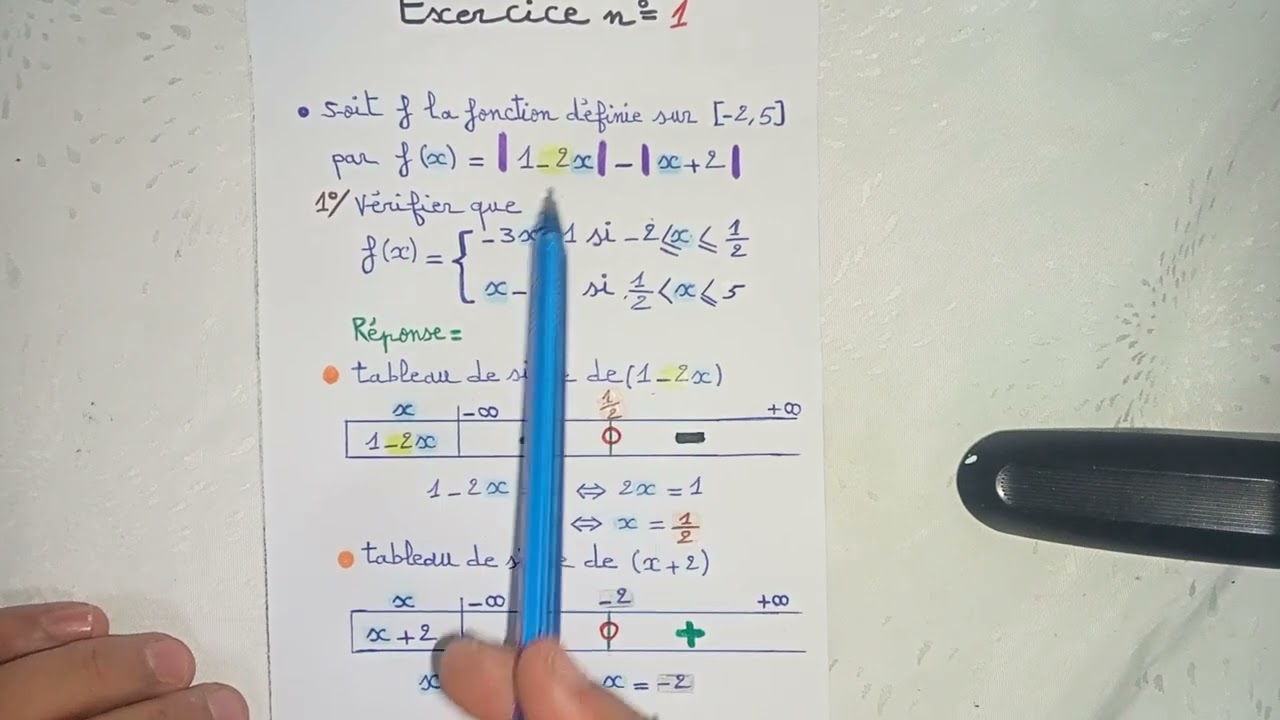 Exercice n° 1
• soit f la fonction définie sur [-2,5]
par f(x) = |1-2x| - |x+2|
1°/ Vérifier que
f(x) = { -3x-1 si -2 ≤ x ≤ 1/2
x- si 1/2 < x ≤ 5
Réponse =
• tableau de de (1-2x)
x -∞ 1/2 +∞
1-2x 0 -
1-2x ⇔ 2x = 1
⇔ x = 1/2
• tableau de de (x+2)
x -∞ -2 +∞
x+2 0 +
x x = -2